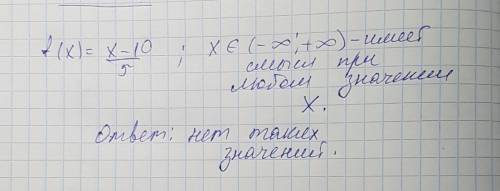 f(x) = x-10/5 ; x∈(-∞;+∞) - имеет
смысл при
любом значении
x.
Ответ: нет таких
значений.